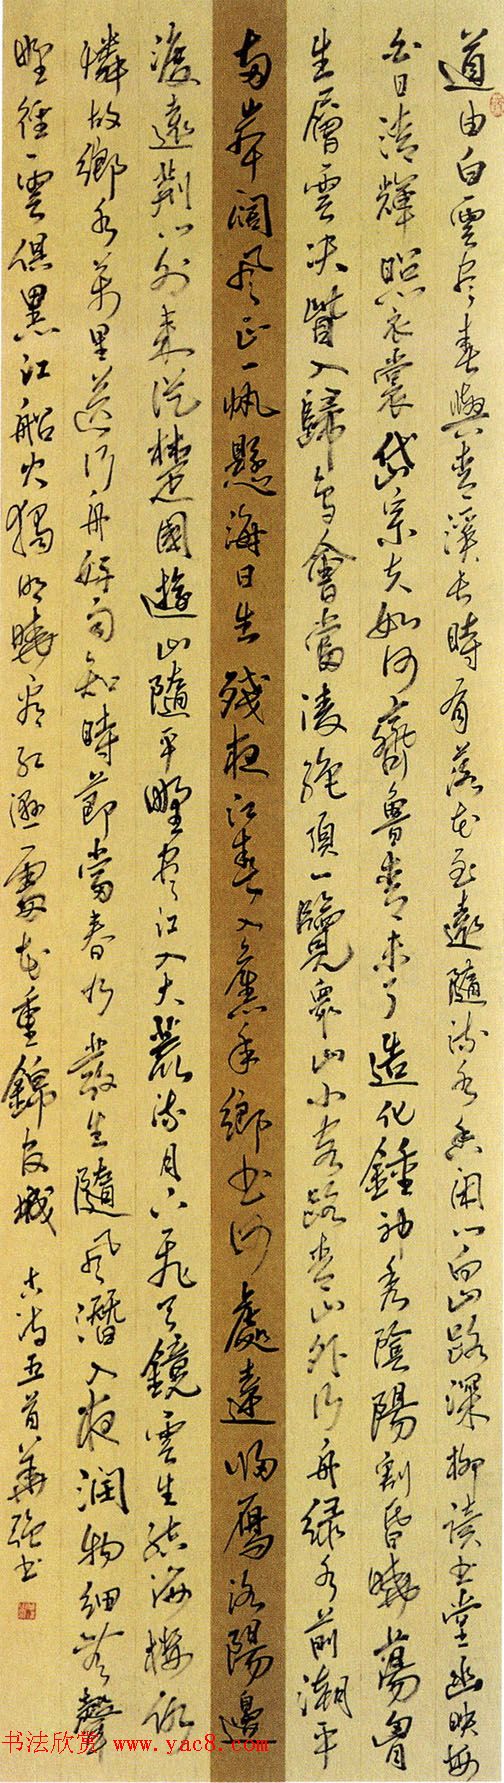 道由白雲尽春與青溪長時有落花至遠隨流水香闲门向山路深柳读书堂幽映每
白日清輝照衣裳岱宗夫如何齊魯青未了造化鍾神秀陰陽割昏曉蕩胸
生層雲决眥入歸鸟會當凌绝頂一覽眾山小客路青山外行舟绿水前潮平
两岸阔风正一帆懸海日生殘夜江春入舊年鄉书何處達归雁洛陽邊
渡遠荆门外来從楚國遊山隨平野尽江入大荒流月下飛天鏡雲生结海樓仍
憐故鄉水萬里送行舟好雨知時節當春乃發生隨风潛入夜润物细無聲
野徑雲俱黑江船火獨明曉看红濕處花重錦官城 古诗五首華强书
书法欣赏 www.yac8.com